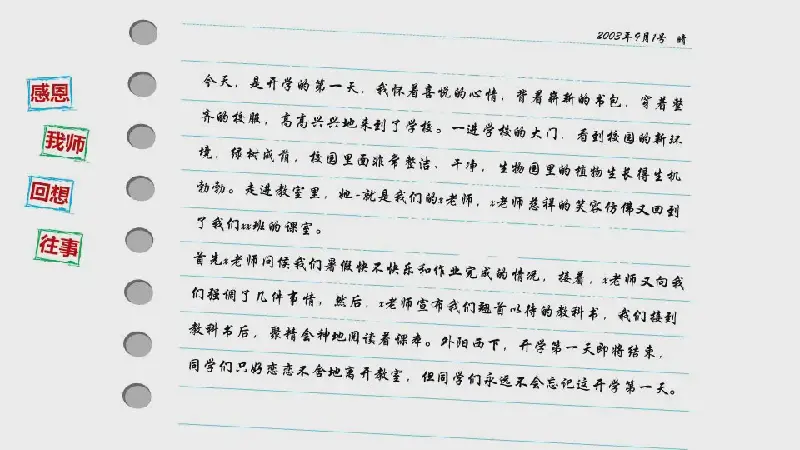 2003年9月1号 晴
感恩
我师
回想
往事
今天，是开学的第一天，我怀着喜悦的心情，背着崭新的书包，穿着整
齐的校服，高高兴兴地来到了学校。一进学校的大门，看到校园的新环
境，绿树成荫，校园里面非常整洁、干净，生物园里的植物生长得生机
勃勃。走进教室里，她-就是我们的x老师，x老师慈祥的笑容仿佛又回到
了我们xx班的课室。
首先x老师问候我们暑假快不快乐和作业完成的情况，接着，x老师又向我
们强调了几件事情，然后，x老师宣布我们翘首以待的教科书，我们接到
教科书后，聚精会神地阅读着课本。外阳西下，开学第一天即将结束，
同学们只好恋恋不舍地离开教室，但同学们永远不会忘记这开学第一天。